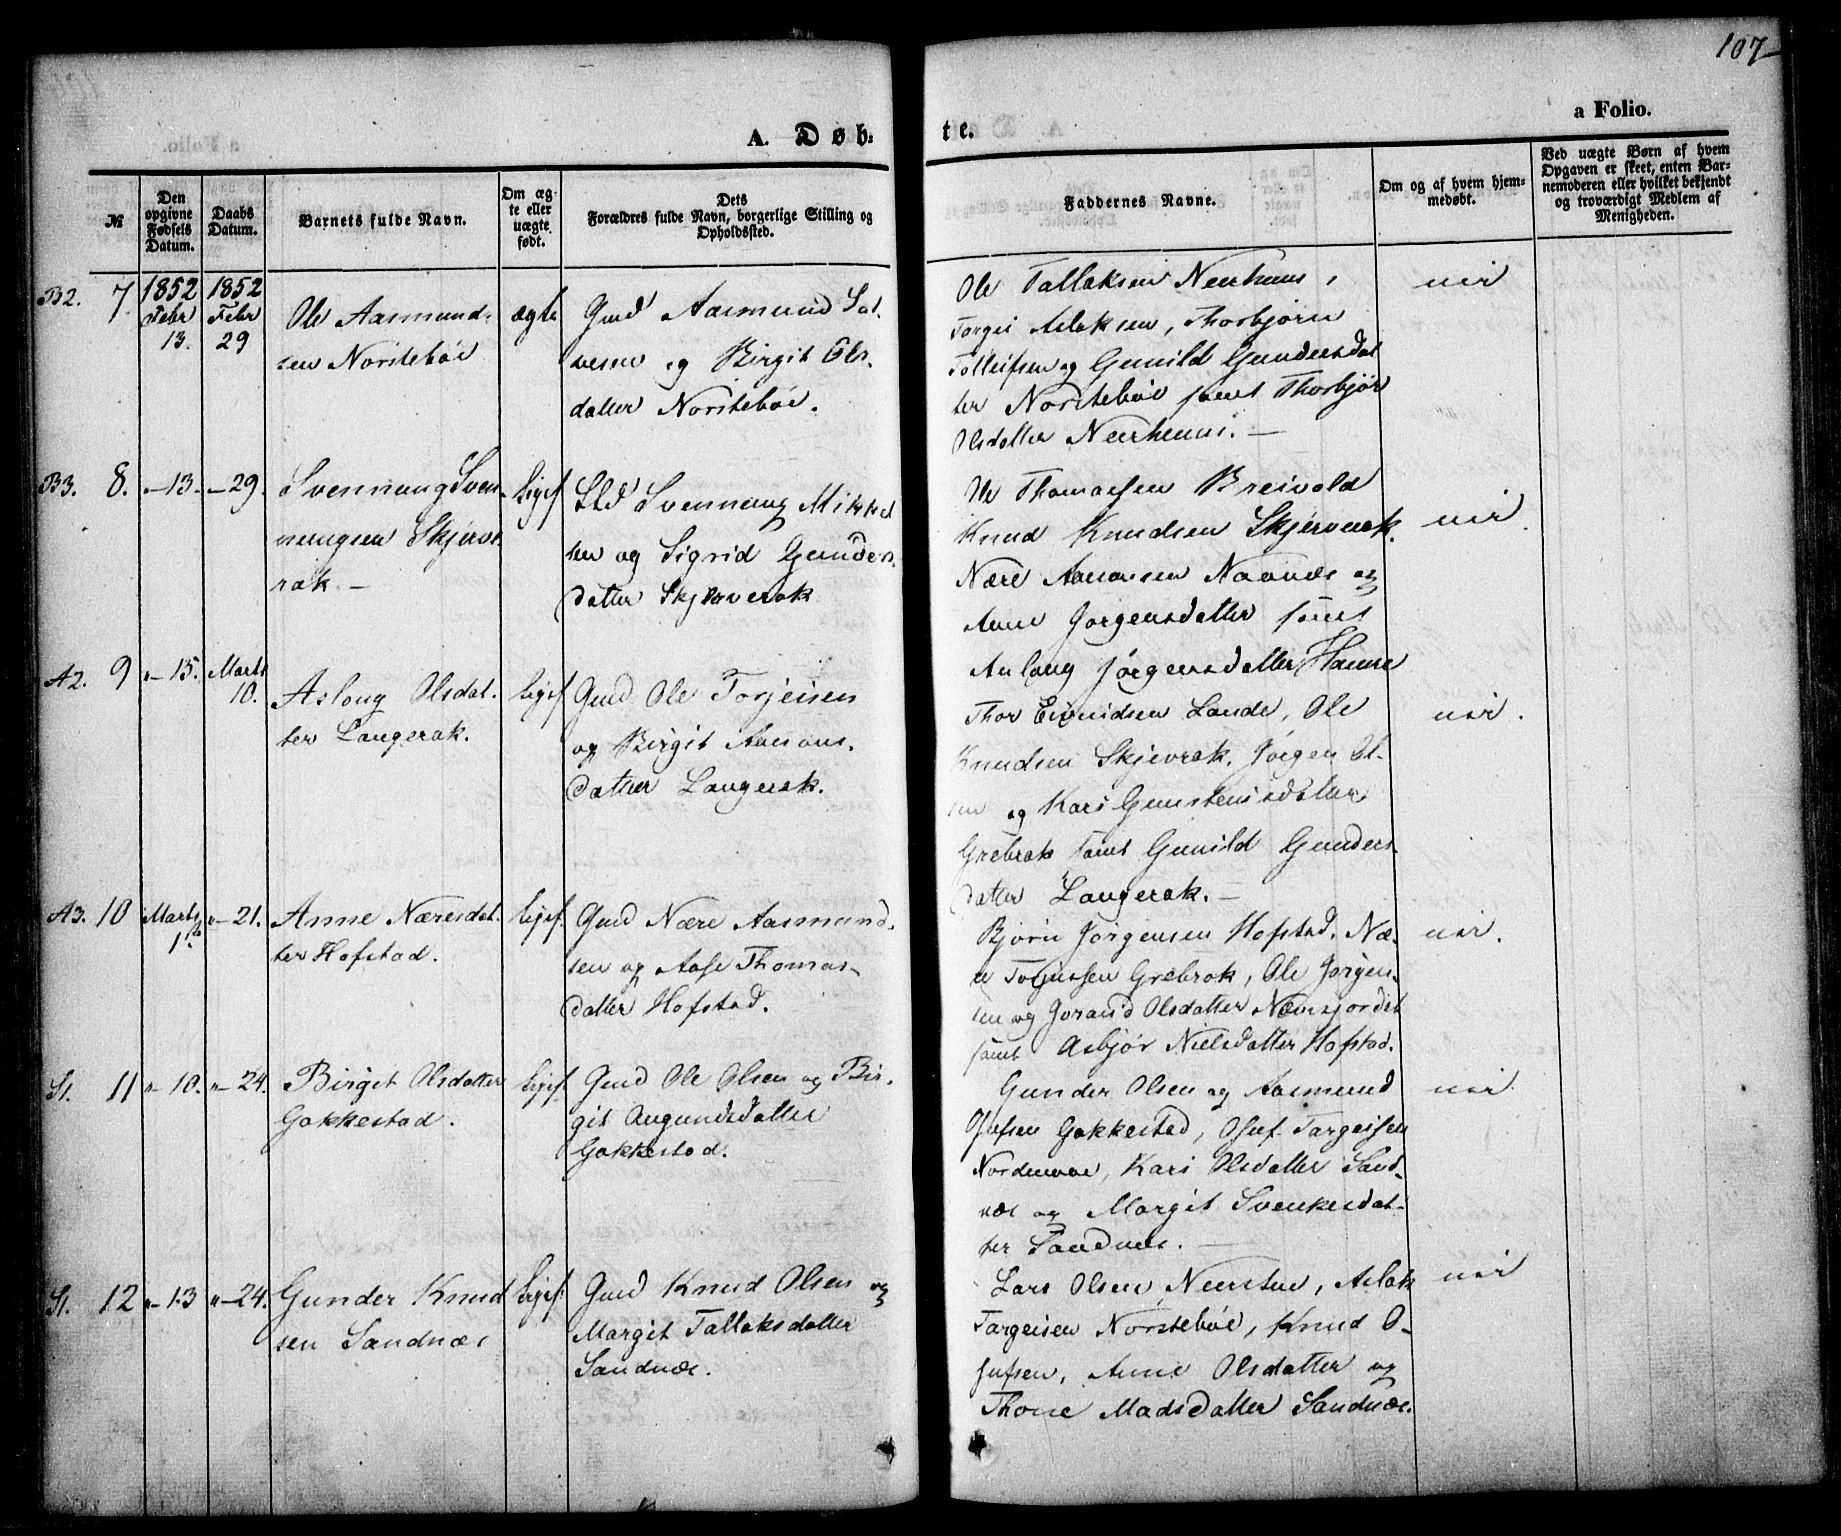 107
a Folio.
A. Døb-
te.
№
Den opgivne Fødsels Datum.
Daabs Datum.
Barnets fulde Navn.
Om ægte eller uægte født.
Dets Forældres fulde Navn, borgerlige Stilling og Opholdssted.
Faddernes Navne.
Om og af hvem hjemmedøbt.
Ved uægte Børn af hvem Opgaven er skeet, enten Barnemoderen eller hvilket bekjendt og troværdigt Medlem af Menigheden.
B2. 7.
1852 Febr 13.
1852 Febr 29
Ole Aasmund-
sen Norstebøe
ægte
Gmd Aasmund Sal-
vesen og Birgit Ols-
datter Norstebøe.
Ole Tallaksen
Torgei Aslaksen, Thorbjørn
Tolleifsen og Gunild Gundersdat
ter Norstebøe samt Thorbjør
Olsdatter
nei
B3. 8.
"-13.
"-29.
Svennung Sven-
nungsen Skjeve-
rak. -
liges.
Svennung Mikkel
sen og Sigrid Gunders-
datter Skjeverak
Ole Thomassen Breivold
Knud Knudsen Skjeverak.
Nære Aanonsen og
Anne Jørgensdatter samt
Aslaug Jørgensdatter
nei.
A2. 9
"-15.
Marts 10.
Aslong Olsdat-
ter Langerak.
liges.
Gmd Ole Torjeisen
og Birgit Aanons-
datter Langerak.
Thor Eivindsen Lande, Ole
Knudsen Skjevrak, Jørgen Ol-
sen og Kari Gunsteinsdatter
Grebrok samt Gunild Gunders-
datter Langerak. -
nei.
A3. 10
Marts 1ste
"-21.
Anne Næresdat-
ter Hofstad.
ligef.
Gmd Nære Aasmund-
sen og Aase Thomas-
datter Hofstad.
Bjørn Jørgensen Hofstad, Næ-
re Torjussen Grebrok, Ole Jørgen-
sen og Jorand Olsdatter
samt Asbjør Nielsdatter Hofstad.
nei.
St. 11
"-10.
"-24.
Birgit Olsdatter
Gakkestad.
ligef.
Gmd Ole Olsen og Bir-
git Augundsdatter
Gakkestad.
Gunder Olsen og Aasmund
Osufsen Gakkestad, Osuf Targeisen
Kari Olsdatter Sand-
næs og Margit Svenkesdat-
ter Sandnæs. -
nei.
St. 12
"-13
"-24.
Gunder Knud
sen Sandnæs
ligef.
Gmd Knud Olsen og
Margit Tallaksdatter
Sandnæs.
Lars Olsen Aslak
Targeisen Norstebøe, Knud O-
sufsen, Anne Olsdatter og
Thone Madsdatter Sandnæs.
nei